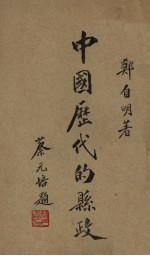 鄭自明著
中國歷代的縣政
蔡元培題